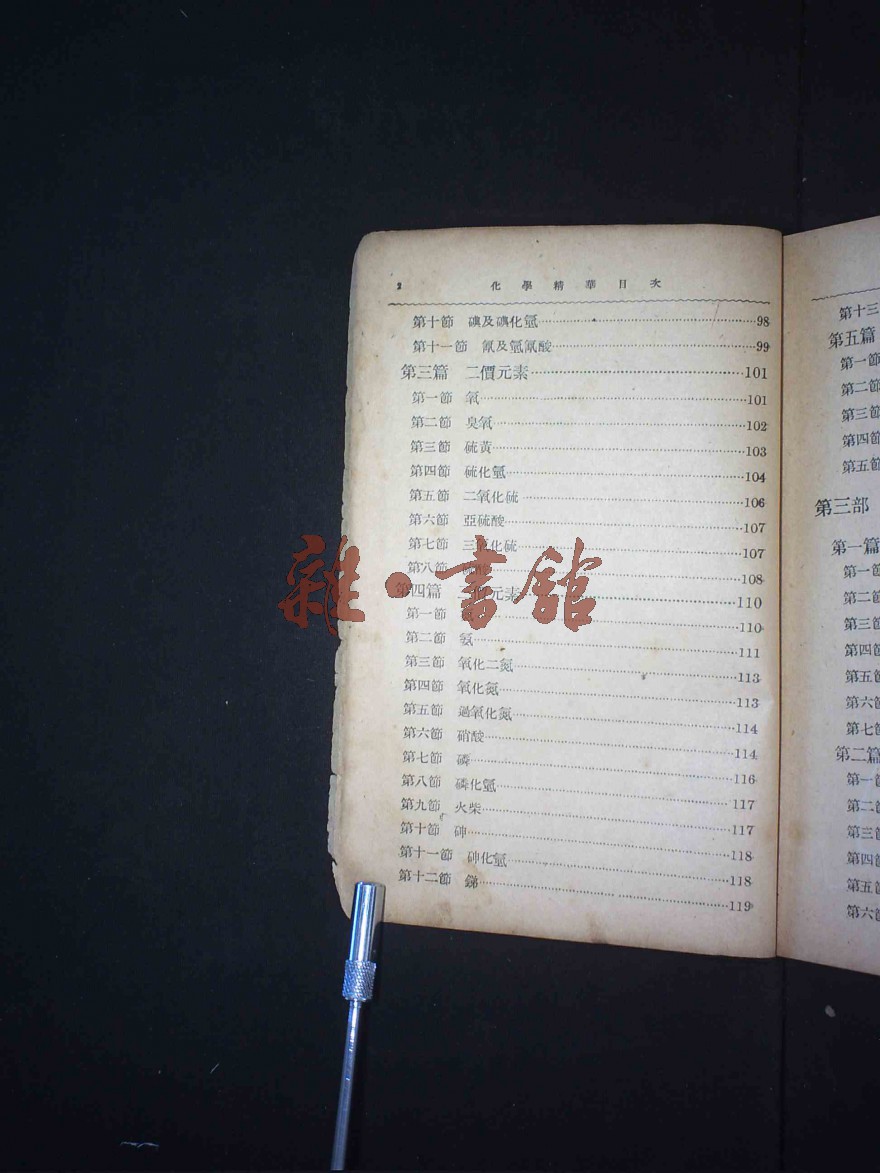 2 化學精華目次
第十節 碘及碘化氫 98
第十一節 氰及氫氰酸 99
第三篇 二價元素 101
第一節 氧 101
第二節 臭氧 102
第三節 硫黃 103
第四節 硫化氫 104
第五節 二氧化硫 106
第六節 亞硫酸 107
第七節 三氧化硫 107
第八節 108
第四篇 三價元素 110
第一節 110
第二節 氨 111
第三節 氧化二氮 113
第四節 氧化氮 113
第五節 過氧化氮 114
第六節 硝酸 114
第七節 磷 116
第八節 磷化氫 117
第九節 火柴 117
第十節 砷 118
第十一節 砷化氫 118
第十二節 銻 119
雜·書館
第十三
第五篇
第一節
第二節
第三節
第四節
第五節
第三部
第一篇
第一節
第二節
第三節
第四節
第五節
第六節
第七節
第二篇
第一節
第二節
第三節
第四節
第五節
第六節